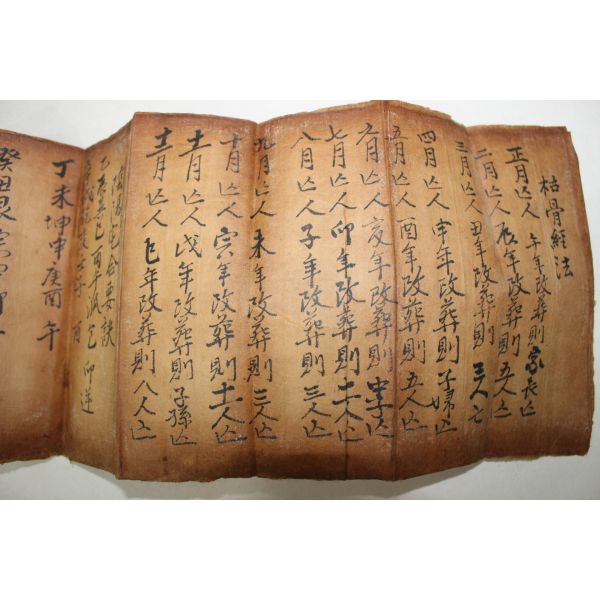 枯骨經法
正月亡人 午年改葬則 家長亡
二月亡人 辰年改葬則 五人亡
三月亡人 丑年改葬則 三人亡
四月亡人 申年改葬則 子婦亡
五月亡人 酉年改葬則 五人亡
六月亡人 亥年改葬則 字亡
七月亡人 卯年改葬則 十一人亡
八月亡人 子年改葬則 三人亡
九月亡人 未年改葬則 三人亡
十月亡人 寅年改葬則 十一人亡
十一月亡人 戊年改葬則 子孫亡
十二月亡人 巳年改葬則 八人亡
要訣
丁未坤申庚酉 午
癸丑艮寅甲卯